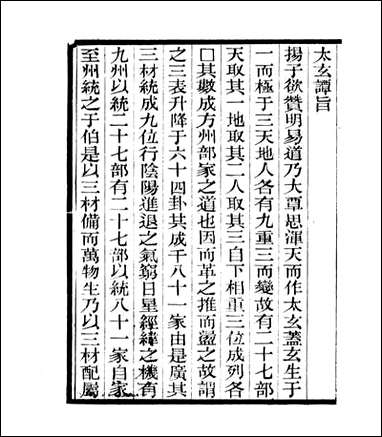 太玄譚旨
揚子欲贊明易道乃大覃思渾天而作太玄蓋玄生于
一而極于三天地人各有九重三而變故有二十七部
天取其一地取其二人取其三自下相重三位成列各
□其數成方州部家之道也因而革之推而盪之故謂
之三表升降于六十四卦其成千八十一家由是廣其
三材統成九位行陰陽進退之氣窮日星經緯之機有
九州以統二十七部有二十七部以統八十一家自家
至州統之于伯是以三材備而萬物生乃以三材配屬